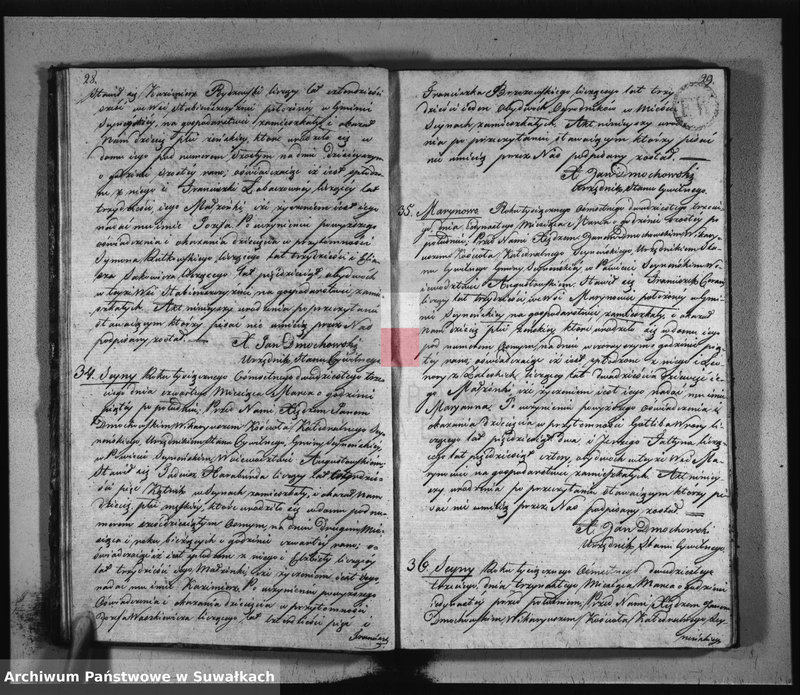 28.
Stawił się Kazimierz liczący lat czterdzieści
sześć w Wsi w Gminie
na gospodarstwie zamieszkały i okazał
Nam dziecię płci żeńskiej, które urodziło się w
domu jego pod numerem szóstym na dniu dzisiejszym
o godzinie szóstej rano, oświadczając iż jest spłodzo-
ne z niego i Franciszki liczącej lat
trzydzieści jego Małżonki, iż życzeniem jest jego
nadać mu imie Po uczynieniu powyższego
oświadczenia i okazania dziecięcia w przytomności
Szymona liczącego lat trzydzieści i
liczącego lat pięćdziesiąt obydwóch
w tejże Wsi na gospodarstwie zami-
eszkałych. Akt niniejszy urodzenia po przeczytaniu
stawiającym którzy pisać nie umieją przez Nas
podpisany został. —
X. Jan Dmochowski
Urzędnik Stanu Cywilnego
34. Seyny Roku tysiącznego Ośmsetnego dwudziestego trze-
ciego dnia czwartego Miesiąca Marca o godzinie
piątej po południu, Przed Nami Xiędzem Janem
Dmochowskim Wikaryuszem Kościoła Katedralnego Sey-
neńskiego, Urzędnikiem Stanu Cywilnego, Gminy Seyneńskiej,
w Powiecie Seyneńskim Województwie Augustowskiem
Stawił się Tadeusz liczący lat czterdzie-
ści pięć w Seynach zamieszkały, i okazał Nam
dziecię płci męskiej, które urodziło się w domu pod nu-
merem sześćdziesiątym ósmym, na dniu drugim Mie-
siąca i roku bieżących o godzinie czwartej rano; o-
świadczając iż jest spłodzone z niego i Elżbiety liczącej
lat trzydzieści Jego Małżonki, iż życzeniem jest Jego
nadać mu imie Kazimierz. Po uczynieniu powyższego
Oświadczenia i okazania dziecięcia w przytomności
Józefa liczącego, lat trzydzieści pięć i
29.
Franciszka liczącego lat trzy-
dzieści jeden obydwóch w Mieście
Seynach, zamieszkałych. Akt niniejszy urodze-
nia po przeczytaniu stawiającym którzy pisać
nie umieją przez Nas podpisany został. —
X. Jan Dmochowski
Urzędnik Stanu Cywilnego.
35. Marynowo Roku tysiącznego Ośmsetnego dwudziestego trzecie-
go, dnia Miesiąca Marca o godzinie szóstej po
południu; Przed Nami Xiędzem Janem Dmochowskim Wikary-
uszem Kościoła Katedralnego Seyneńskiego, Urzędnikiem Sta-
nu Cywilnego Gminy Seyneńskiej w Powiecie Seyneńskim Wo-
jewództwie Augustowskim Stawił się Franciszek
liczący lat trzydzieści, w Wsi Marynowie położonej w Gmi-
nie Seyneńskiej na gospodarstwie zamieszkały i okazał
nam dziecię płci żeńskiej które urodziło się w domu jego
pod numerem ósmym, na dniu wczorajszym o godzinie pią-
tej rano; oświadczając iż jest spłodzone z niego i
liczącej lat dwadzieścia dziewięć je-
go Małżonki, iż życzeniem jest jego nadać mu imie
Maryanna. Po uczynieniu powyższego oświadczenia i
okazania dziecięcia w przytomności
liczącego lat pięćdziesiąt dwa i liczą-
cego lat pięćdziesiąt cztery, obydwóch w tejże Wsi Ma-
rynowie na gospodarstwie zamieszkałych. Akt niniej-
szy urodzenia po przeczytaniu stawiającym którzy pi-
sać nie umieją przez Nas podpisany został —
X. Jan Dmochowski
Urzędnik Stanu Cywilnego.
36. Seyny Roku tysiącznego Ośmsetnego dwudziestego
trzeciego, dnia trzynastego Miesiąca Marca o godzinie
przed południem, Przed Nami Xiędzem Janem
Dmochowskim, Wikaryuszem Kościoła Katedralnego Sey-
neńskiego
Archiwum Państwowe w Suwałkach